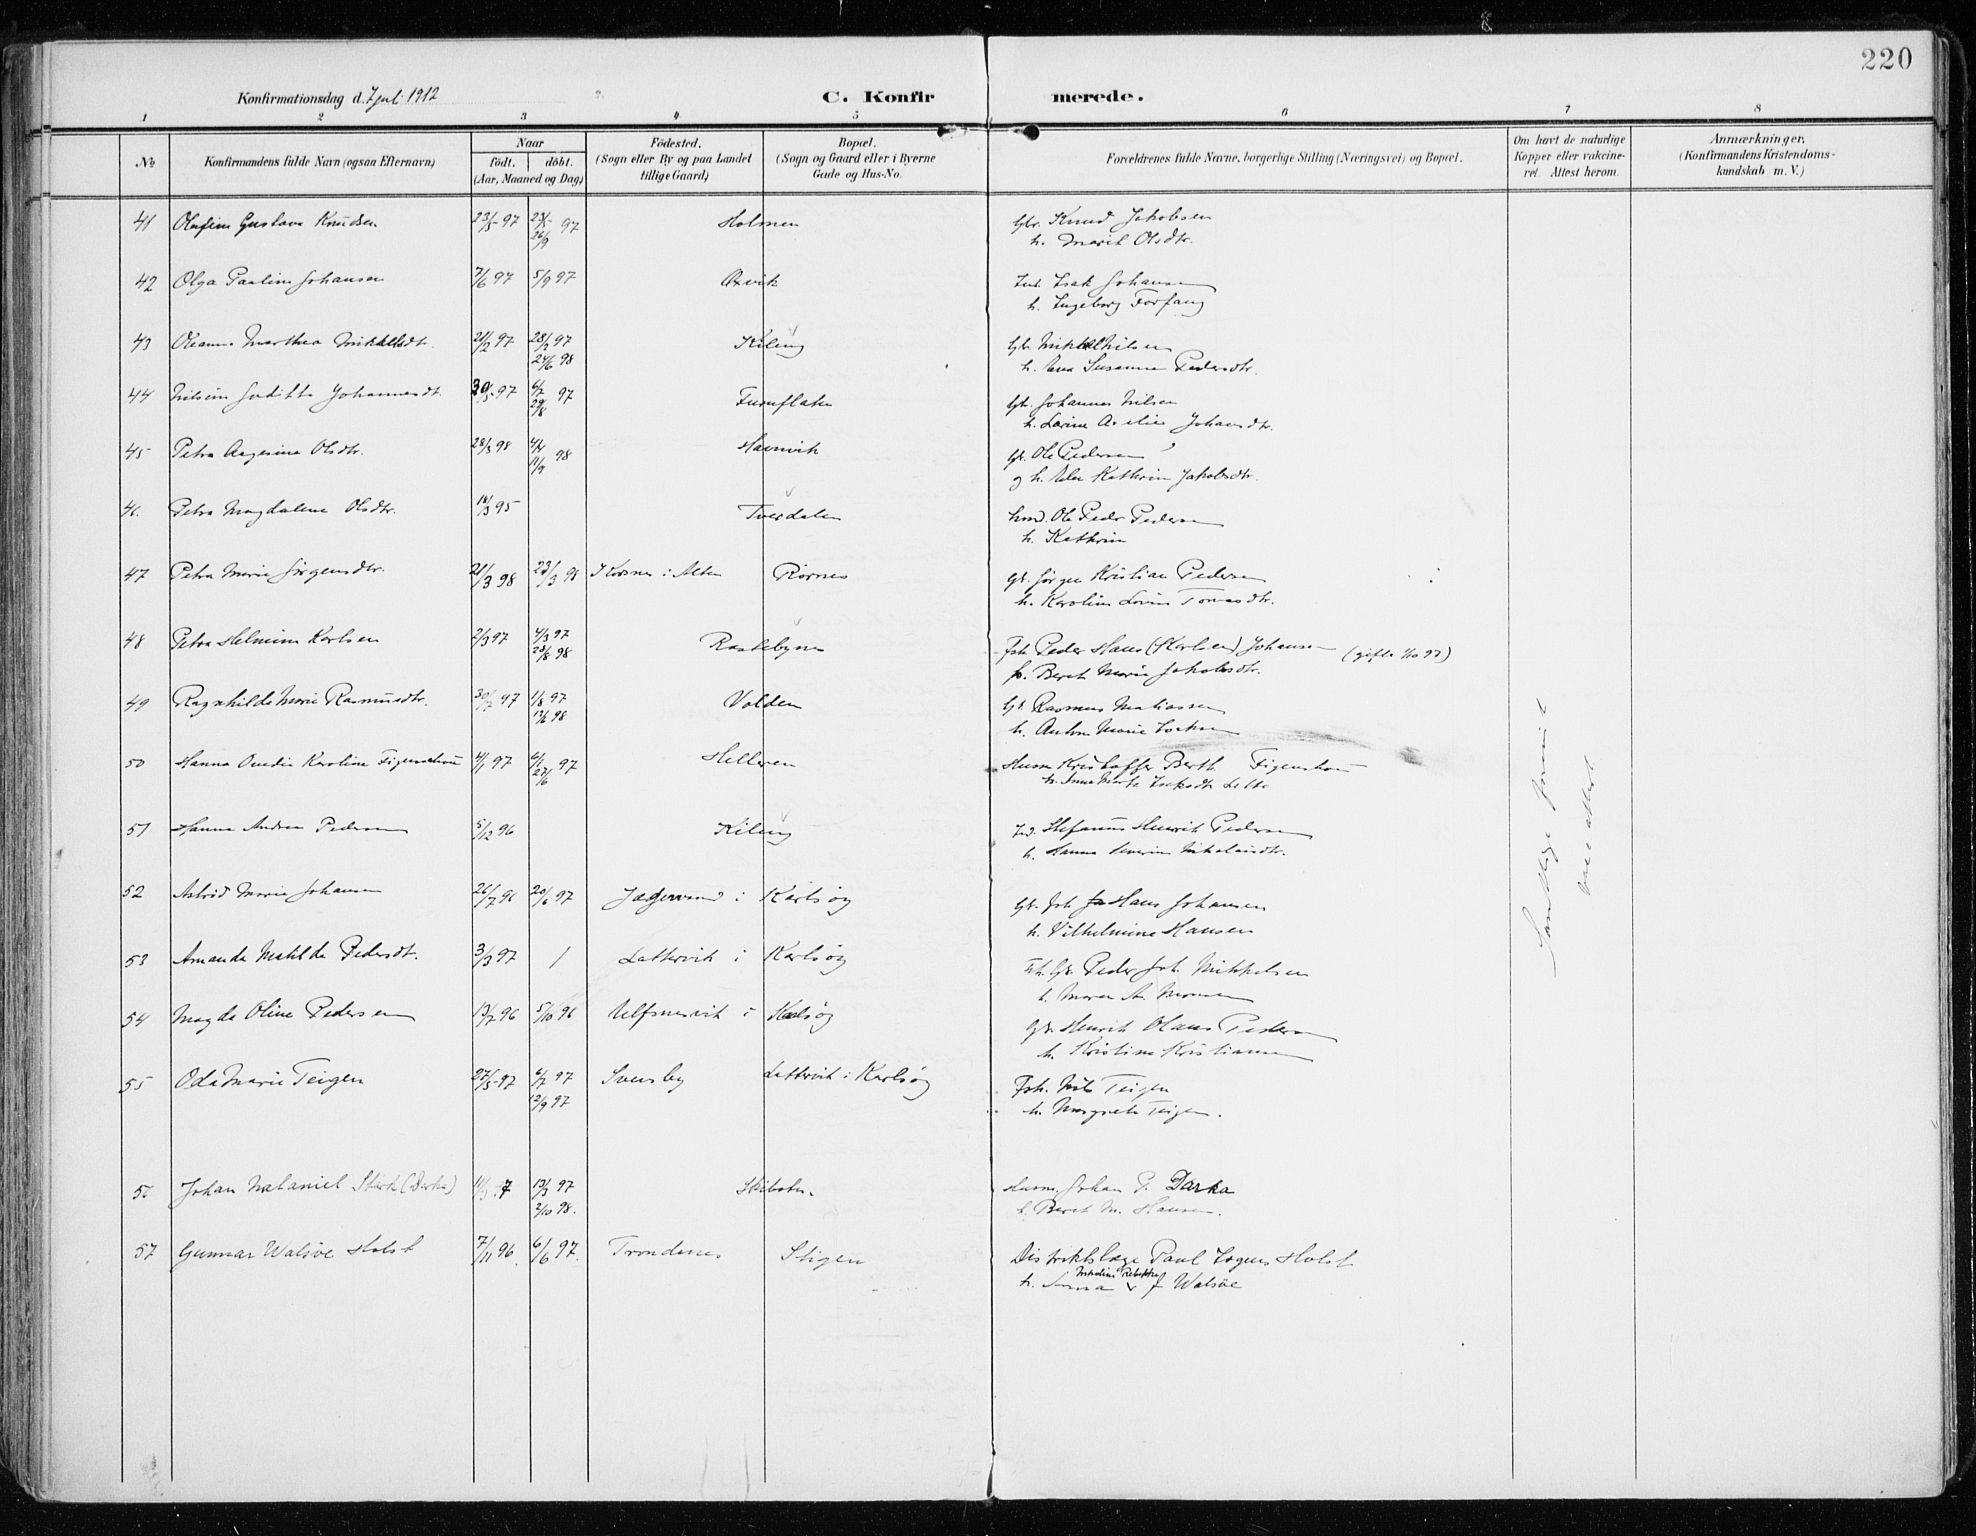 220
Konfirmationsdag d. 7 juli 1912
C. Konfirmerede.
1 2 3 4 5 6 7 8
No
Konfirmandens fulde Navn (ogsaa Efternavn)
Naar
födt. döbt.
(Aar, Maaned og Dag)
Födested.
(Sogn eller By og paa Landet
tillige Gaard)
Bopæl.
(Sogn og Gaard eller i Byerne
Gade og Hus-No.
Forældrenes fulde Navne, borgerlige Stilling (Næringsvei) og Bopæl.
Om havt de naturlige
Kopper eller vakcine-
ret. Attest herom.
Anmærkninger.
(Konfirmandens Kristendoms-
kundskab m. V.)
41 Olufine Gustava Knudsen 23/5-97 97 26/9 Holmen Gbr. Knud Jakobsen
h. Marit Olsdtr.
42 Olga Pauline Johansen 7/6 97 5/9 97 Oxvik Ind. Isak Johansen
h. Ingeborg Forfang
43 Oleanna Marthea Mikkelsdt. 21/2 97 28/2 97 24/6 98 Kileng Gb. Mikkel Nilsen
h. Susanna Pedersdtr.
44 Judith Johannesdt. 30/5-97 6/7 97 29/8 Furuflaten Gb. Johannes Nilsen
h. Johansdtr.
45 Petra Aagesine Olsdtr. 28/3 98 4/4 98 11/9 Havnvik Gb. Ole Pedersen
og h. Kathrin Jakobsdtr.
46. Petra Magdalene Olsdtr. 18/3 95 Tverdalen Ole Peder Pedersen
h. Kathrin
47 Petra Marie Jörgensdtr. 21/3 98 23/3 98 i Alten Rornes Gb. Jörgen Kristian Pedersen
h. Karoline Lovise Tomasdtr.
48 Petra Helmine Karlsen 2/3 97 4/3 97 28/8 98 Rastebynes Fsk. Peder Hans (Karlsen) Johansen (gifte 1/10 97)
Berit Marie Jakobsdtr.
49 Ragnhilda Marie Rasmusdtr. 30/7 97 1/8 97 12/6 98 Volden Gb. Rasmus Matiassen
h. Anton Marie
50 Hanna Ovedie Karoline Figenschou 4/1 97 6/1 97 27/6 Helleren Husm Kristoffer Berth Figenschou
h. Anna Marta Isaksdtr
51 Hanna Andrea Pedersen 5/12 96 Kileng Ind. Stefanus Henrik Pedersen
h. Hanna Severine Nikolaisdtr.
52 Astrid Marie Johansen 26/7 96 20/6 97 Jægervand i Karlsöy Gb. Joh Hans Johansen
h. Vilhelmine Hansen
53 Amanda Matilde Pedersdt. 3/3 97 / Lattervik i Karlsöy Fsk. Gb. Peder Joh. Mikkelsen
h. Maren A. Monsen
54 Magda Oline Pedersen 13/7 96 5/10 96 Ulfsnesvik i Karlsöy Gb. Henrik Olaus Pedersen
h. Kristine Kristiansen
55 Oda Marie Teigen 27/5-97 6/7 97 12/9 97 Svensby Lattervik i Karlsöy Fsk. Nils Teigen
h. Margrete Teigen.
56 Johan Nataniel Stark (Darka) 13/3 97 2/10 98. Skibotn. Husm. Johan P. Darka
h. Berit M. Hansen.
57 Gunnar Walsöe Holst 7/11 96. 6/6 97. Trondenes Stigen Distriktslæge Paul Holst
Nikoline Rebekka
h. Anna f Walsöe
Samtlige forevist
vac. attest